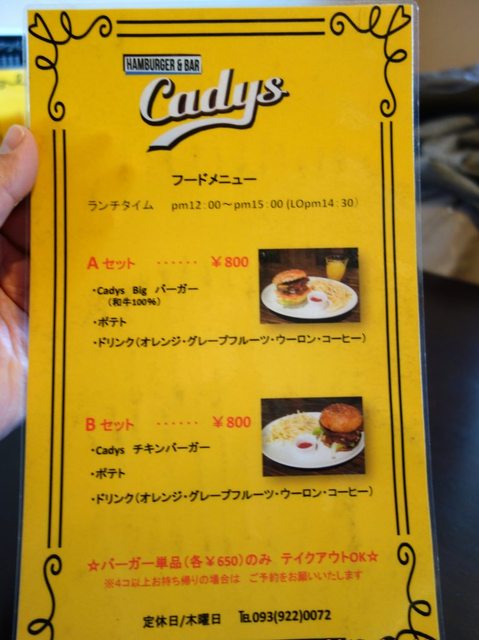 HAMBURGER & BAR
Cadys
フードメニュー
ランチタイム pm12:00～pm15:00 (LOpm14:30)
A セット ‥‥‥ ￥800
・Cadys Big バーガー
(和牛100%)
・ポテト
・ドリンク(オレンジ・グレープフルーツ・ウーロン・コーヒー)
B セット ‥‥‥ ￥800
・Cadys チキンバーガー
・ポテト
・ドリンク(オレンジ・グレープフルーツ・ウーロン・コーヒー)
☆バーガー単品(各￥650)のみ テイクアウトOK☆
※4コ以上お持ち帰りの場合は ご予約をお願いいたします
定休日/木曜日 ℡093(922)0072